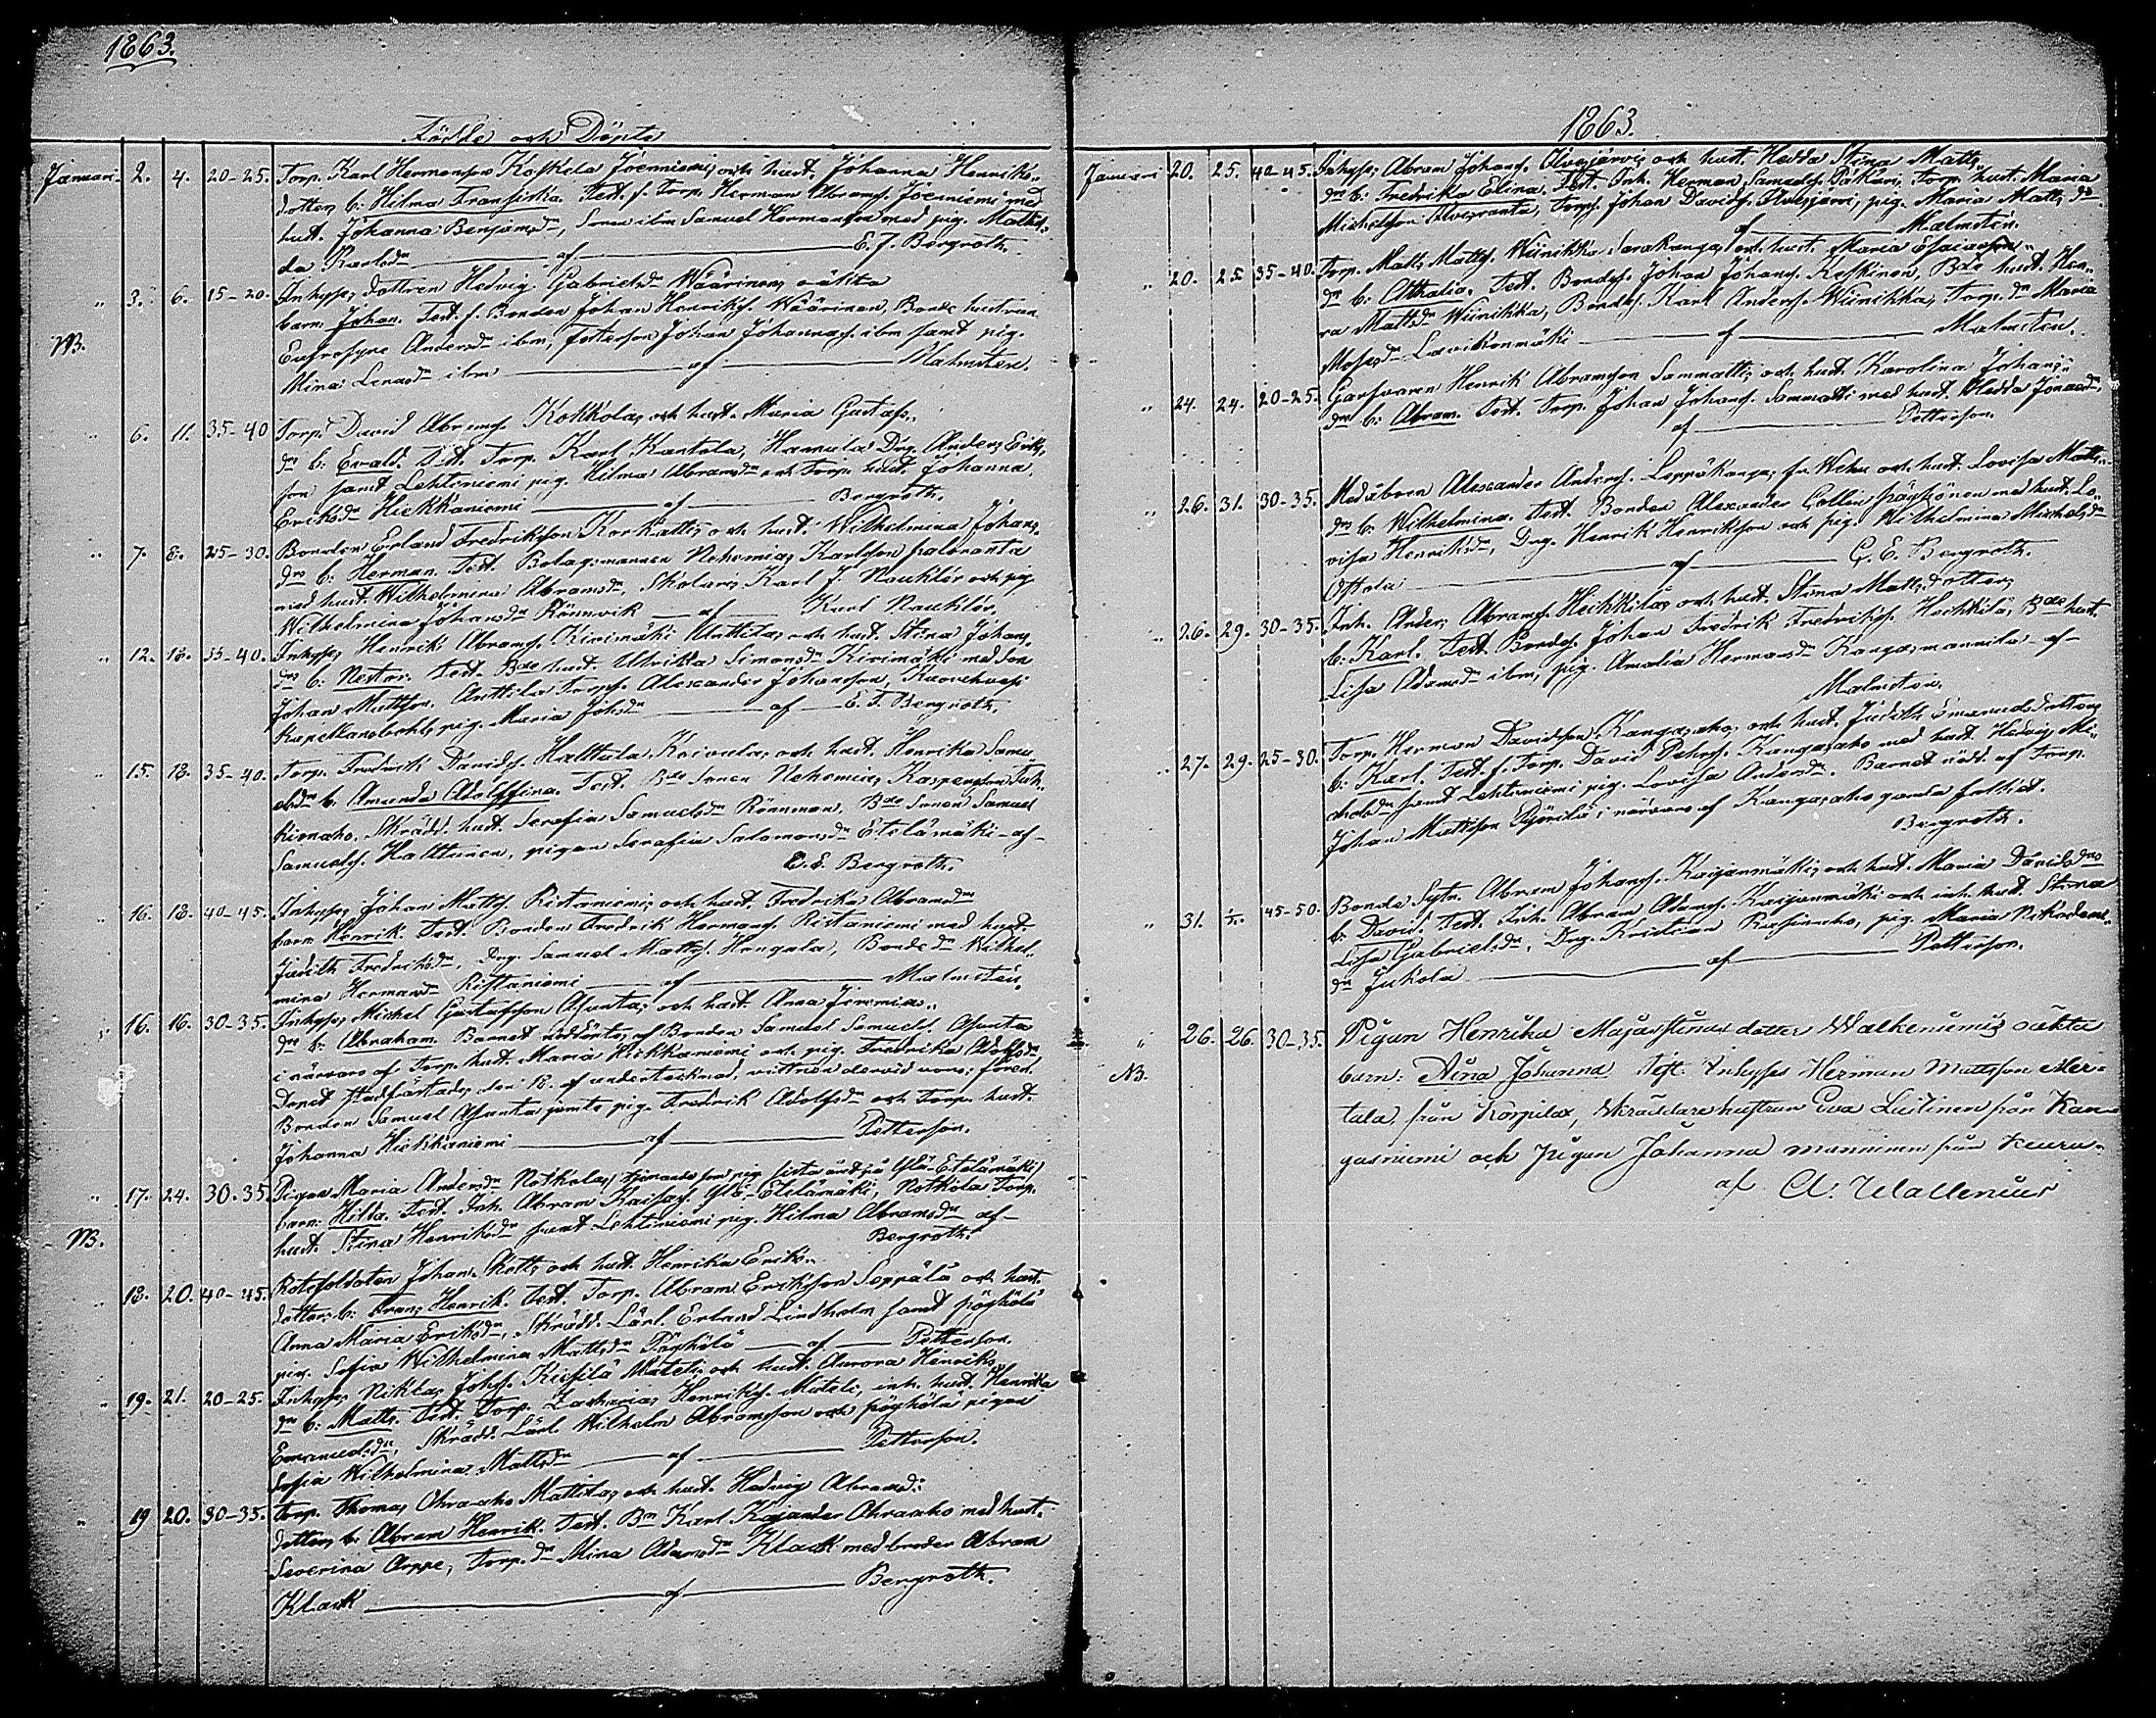 1863.
Födde och Döpte
Januari 2. 4. 20-25. Torp. Karl Hermansson Koskela Joenniemi, och hust. Johanna Henriks-
dotter, b: Hilma Fransiska. Test. f. Torp. Herman Abramss. Joenniemi med
hust. Johanna Benjamsdr, Sonen ibm Samuel Hermansson med pig. Mathil-
da Karlsdr — af — E. J. Bergroth.
" 3. 6. 15-20. Inhyses dottren Hedvig Gabrielsdr Wäärinen, oäkta
barn Johan. Test. f. Bonden Johan Henrikss. Wäärinen, Bonde hustrun
NB.
Eufrosyne Andersdr ibm, fosterson Johan Johannass. ibm samt pig.
Mina Lenasdr ibm — af — Malmsten.
" 6. 11. 35-40 Torp. David Abramss. Kotkola, och hust. Maria Gustafs-
dr b: Evald. Test. Torp. Karl Kantola, Hamula Drg. Anders Eriks-
son samt Lehtiniemi pig. Hilma Abramsdr och Torp. hust. Johanna
Eriksdr Hiekkaniemi — af — Bergroth.
" 7. 8. 25-30. Bonden Erland Fredriksson Korkatti, och hust. Wilhelmina Johans-
dr b: Herman. Test. Bolagsmannen Nehemias Karlsson paloranta
med hust. Wilhelmina Abramsdr, Skolaren Karl J. Nauklér och pig.
Wilhelmina Johansdr Rönnvik — af — Karl Nauklér.
" 12. 18. 35-40. Inhyses Henrik Abramss. Kivimäki Anttila, och hust. Stina Johans-
dr b: Nestor. Test. Bde hust. Ulrika Simonsdr Kivimäki med son
Johan Mattson. Anttila Torps. Alexander Johansson,
Kapellansbohls pig. Maria Johsdr — af — E. F. Bergroth.
" 15. 18. 35-40. Torp. Fredrik Davids. Halttula Koivula, och hust. Henrika Samu-
elsdr b. Amanda Adolffina. Test. Bde Sonen Nehemias
Skrädd. hust. Serafia Samuelsdr Rönnman, Bde Sonen Samuel
Samuelss. Halttunen, pigan Serafia Salomonsdr Etelämäki - af -
E. E. Bergroth.
" 16. 18. 40-45. Inhyses Johan Mattss. Ristaniemi, och hust. Fredrika Abramsdrs
barn Henrik. Test. Bonden Fredrik Hermans. Ristaniemi med hust.
Judith Fredriksdr, Drg. Samuel Mattss. Hengala, Bonde dr Wilhel-
mina Hermansdr Ristaniemi — af — Malmstén.
" 16. 16. 30-35. Inhyses Michel Gustafsson Asunta, och hust. Anna Jeremias-
dr b: Abraham. Barnet nöddöptes af Bonden Samuel Samuels. Asunta
i närvaro af Torp. hust. Maria Hiekkaniemi och pig. Fredrika Adolfsdr,
Dopet stadfästades den 18. af undertecknad, vittnen dervid voro: fören.
Bonden Samuel Asunta jemte pig. Fredrik Adolfsdr och Torp. hust.
Johanna Hiekkaniemi — af — Petterson.
" 17. 24. 30-35. Pigan Maria Andersdr Notkola, tjenande som pig sista året på Ylä-Etelämäki
barn: Hilla. Test. Inh. Abram Kaisas. Ylä-Etelämäki, Notkola Torp.
hust. Stina Henriksdr samt Lehtiniemi pig. Hilma Abramsdr af -
NB. Bergroth.
" 18. 20. 40-45. Rotesoldaten Johan Kott, och hust. Henrika Eriks-
dotter, b: Frans Henrik. Test. Torp. Abram Eriksson Seppälä och hust.
Anna Maria Eriksdr, Skrädd. Lärl. Erland Lindholm samt pöyhölä
pig. Sofia Wilhelmina Mattsdr Pöyhölä — af — Petterson.
" 19. 21. 20-25. Inhyses Niklas Johss. Kiesilä Mateli, och hust. Aurora Henriks-
dr b: Matts. Test. Torp. Zacharias Henrikss. Mateli, inh. hust. Henrika
Emanuelsdr, Skrädd. Lärl. Wilhelm Abramsson och pöyhölä pigan
Sofia Wilhelmina Mattsdr — af — Petterson.
" 19 20. 30-35. Torp. Thomas Ahvaaho Mattila, och hust. Hedvig Abrams-
dotter, b: Abram Henrik. Test. Bn Karl Kajander Ahvaaho med hust.
Severina Arppe, Torp. dr Mina Adamsdr Klack med broder Abram
Klack — af — Bergroth.
1863.
Januari 20. 25. 40-45. Inhyses Abram Johanss. Alvesjärvi, och hust. Hedda Stina Matts-
dr b: Fredrika Elina. Test. Inh. Herman Samuelss. Päkäri, Torp. hust. Maria
Michelsson Alvesranta, Torps. Johan Davids. Alvesjärvi, pig. Maria Matts dr
af — Malmstén.
" 20. 25. 35-40. Torp. Matts Mattss. Wiinikka Sarakangas och hust. Maria Esaiasson-
dr b: Atthalia. Test. Bondess. Johan Johanss. Keskinen, Bde hust. Hen-
ra Mattsdr Wiinikka, Bondes. Karl Anderss. Wiinikka, Torp. dr Maria
Mosesdr Lavikonmäki — af — Malmsten.
" 24. 24. 20-25. Garfvaren Henrik Abramsson Sammatti, och hust. Karolina Johans-
dr b: Abram. Test. Torp. Johan Johanss. Sammatti med hust. Hedda Jonasdr,
af — Petterson.
" 26. 31. 30-35. Medåboen Alexander Anderss. Leppäkangas, fr. och hust. Lovisa Matts-
dr b: Wilhelmina. Test. Bonden Alexander Gollen pöyhönen med hust. Lo-
visa Henriksdr, Drg. Henrik Henriksson och pig. Wilhelmina Michelsdr
Ostola — af — G. E. Bergroth.
" 26. 29. 30-35. Inh. Anders Abramss. Heikkilä, och hust. Stina Mattsdotter,
b: Karl. Test. Bondes. Johan Fredrik Fredrikss. Heikkilä, Bde hust.
Lisa Adamsdr ibm, pig. Amalia Hermansdr Kangasmannila - af -
Malmstén.
" 27. 29. 25-30. Torp. Herman Davidsson Kangasaho, och hust. Judith Emanuelsdotter,
b: Karl. Test. f. Torp. David Kangasaho med hust. Hedvig Mi-
chelsdr samt Lehtiniemi pig. Lovisa Andersdr. Barnet nödd. af Torp.
Johan Mattsson i närvaro af Kangasaho gamla folket.
Bergroth.
" 31. 1/2. 45-50. Bonde Sytn. Abram Johanss. Karjanmäki, och hust. Maria Davidsdrs
b: David. Test. Inh. Abram Adamss. Karjanmäki och inh. hust. Stina
Lisa Gabrielsdr, Drg. Kristian Rasinaho, pig. Maria Nikodems-
dr Jukola — af — Petterson.
" 26. 26. 30-35. Pigan Henrika Majasstinas dotter Walkeniemis oäkta
NB. barn: Aina Johanna Test: Inhyses Herman Mattsson
tala, från Korpilax, Skräddarehustrun Eva Lustinen från Kan-
gasniemi och pigan Johanna Manninen från Keuru-
af A: Wallenius